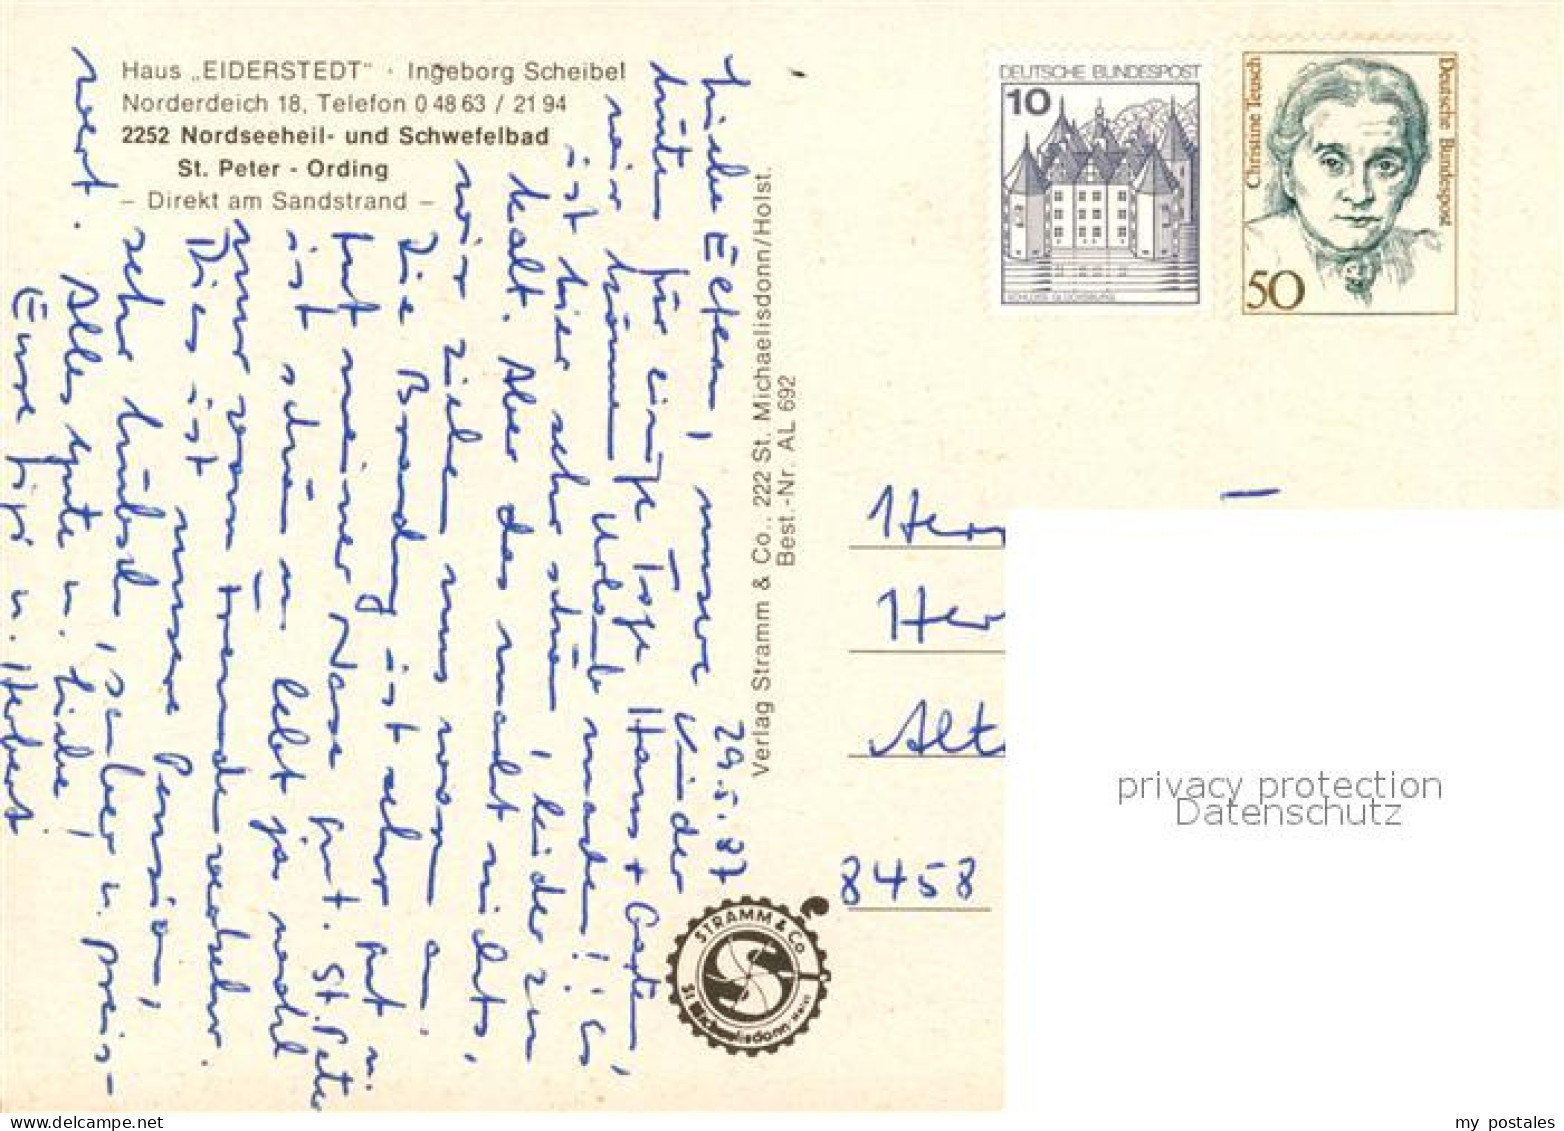 Haus „EIDERSTEDT" · Ingeborg Scheibel
Norderdeich 18, Telefon 0 48 63 / 21 94
2252 Nordseeheil- und Schwefelbad
St. Peter - Ording
– Direkt am Sandstrand –
29.5.87
Liebe Eltern, unsere Kinder
hüten für einige Tage Haus + Garten,
wir können Urlaub machen! Es
ist hier sehr schön, leider zu
kalt. Aber das macht nichts,
wir ziehen uns warm an.
Die Brandung ist sehr gut u.
tut meiner Nase gut. St. Peter
ist schön u. lebt ja wohl
nur vom Fremdenverkehr.
Dies ist unsere Pension,
sehr hübsch, sauber u. preis-
wert. Alles Gute u. Liebe!
Eure u. Herbert
Verlag Stramm & Co., 222 St. Michaelisdonn/Holst.
Best.-Nr. AL 692
STRAMM & Co.
St. Michaelisdonn
DEUTSCHE BUNDESPOST
10
SCHLOSS GLÜCKSBURG
Christine Teusch
Deutsche Bundespost
50
Herr
Her
Alt
8458
privacy protection
Datenschutz
my postales